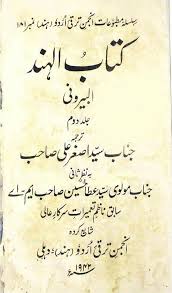 سلسلہ مطبوعات انجمن ترقی اُردو (ہند) نمبر ۱۸۱
کتابُ الہند
البیرونی
جلد دوم
ترجمہ
جناب سیّد اصغر علی صاحب
بہ نظر ثانی
جناب مولوی سیّد عطا حسین صاحب ایم۔اے
سابق ناظم تعمیراتِ سرکارِ عالی
شایع کردہ
انجمن ترقی اُردو (ہند)، دہلی
۱۹۴۲ء